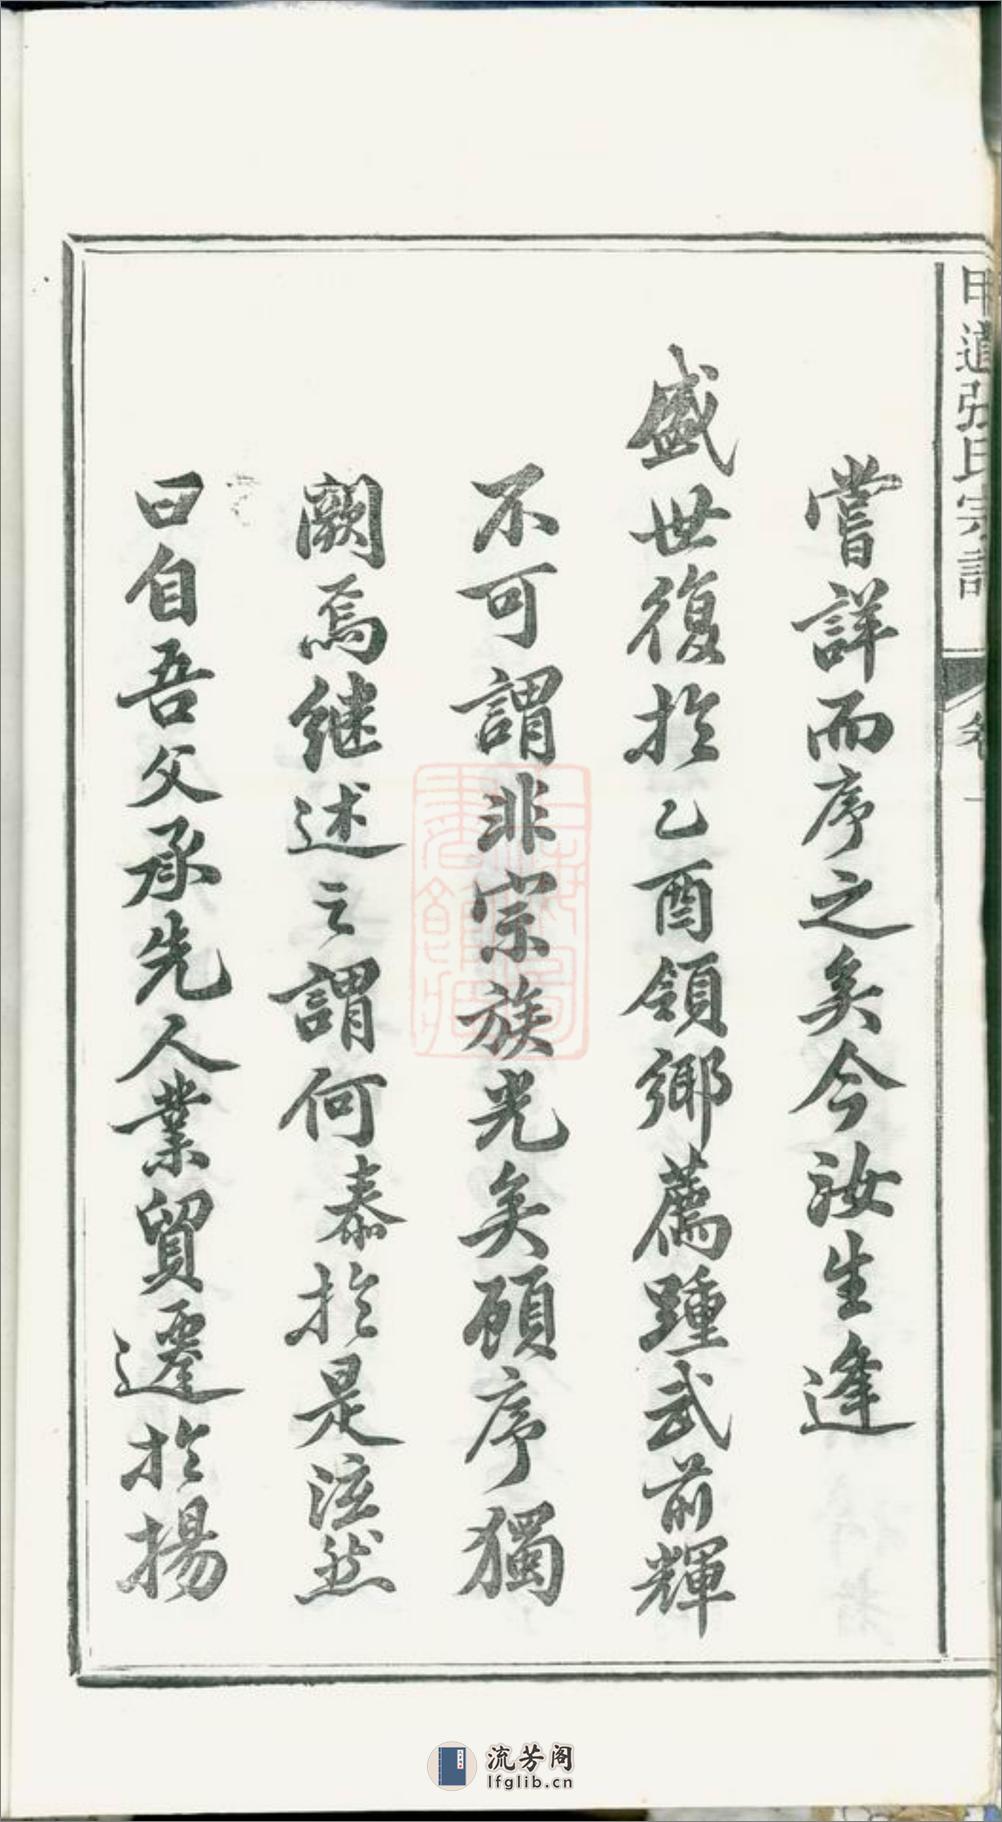 甲道張氏宗譜
卷一
嘗詳而序之矣今汝生逢
盛世復於乙酉領鄉薦踵武前輝
不可謂非宗族光矣顧序獨
闕焉継述之謂何泰於是泫然
曰自吾父承先人業貿遷於揚
流芳阁
lfglib.cn